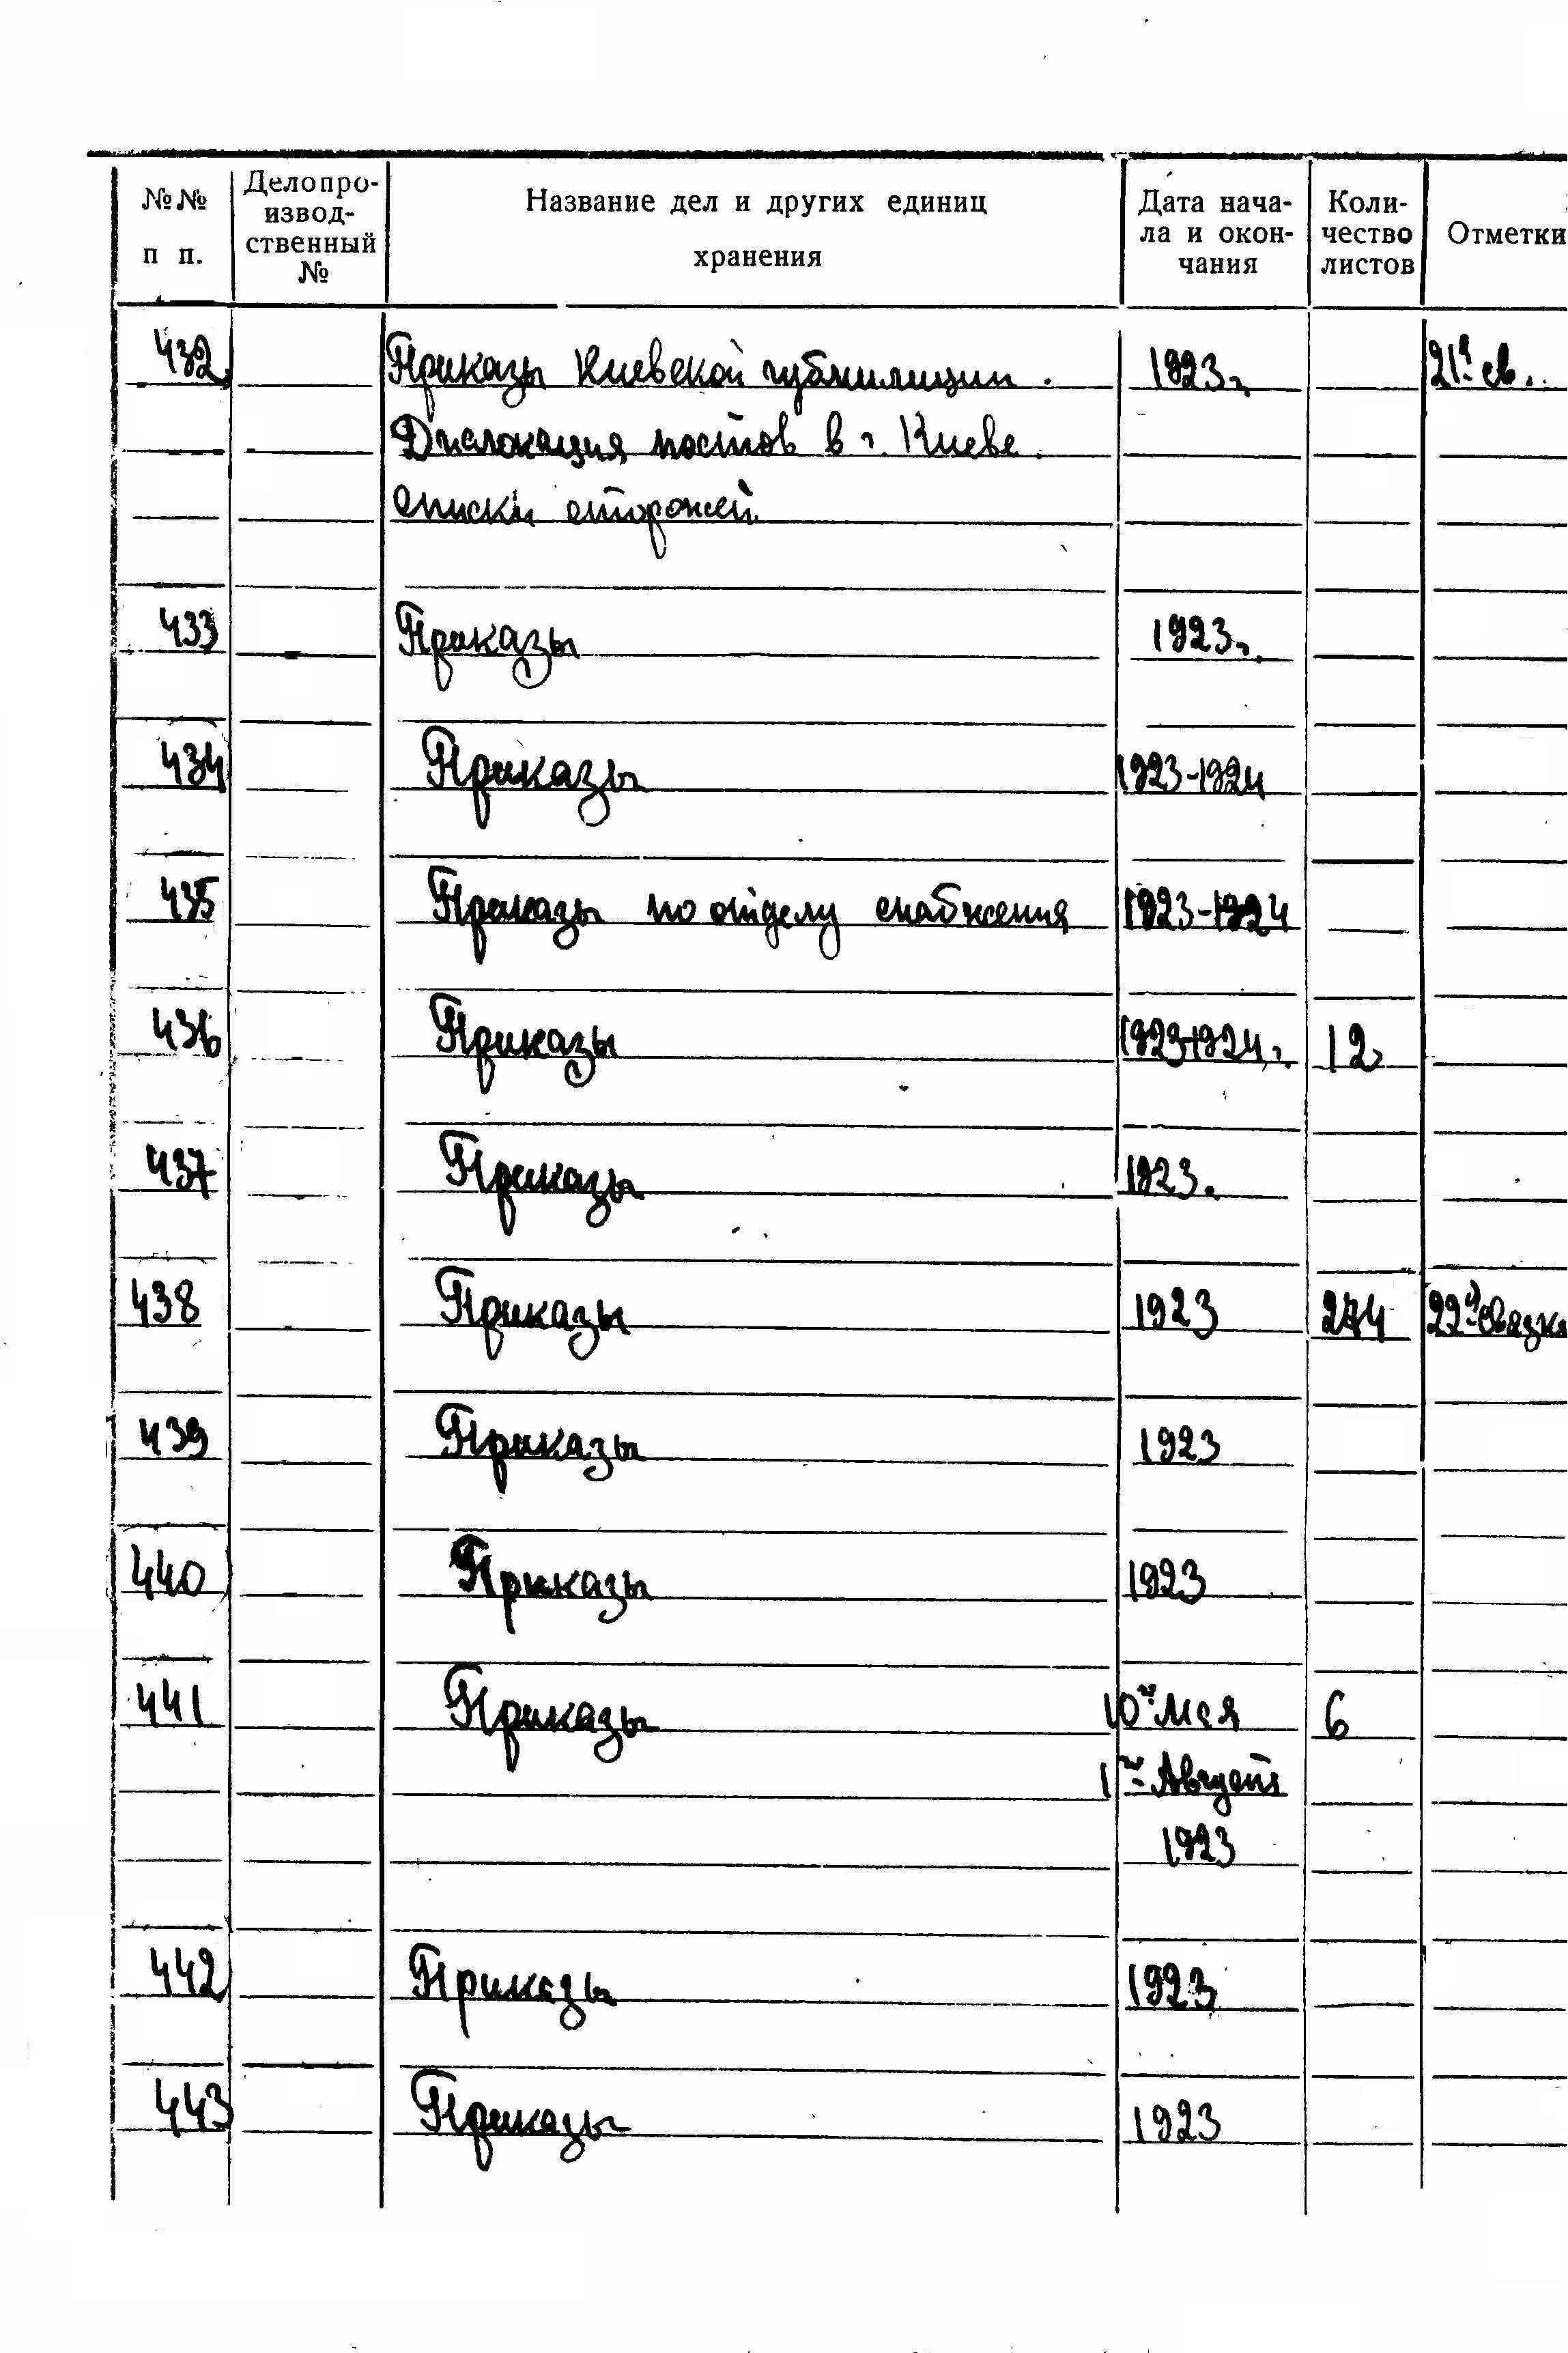 №№ п п. Делопро-извод-ственный № Название дел и других единиц хранения Дата нача-ла и окон-чания Коли-чество листов Отметки
432 Приказы Киевской губмилиции. 1923г. 21я св.
Дислокация постов в г. Киеве.
Списки сторожей
433 Приказы 1923г.
434 Приказы 1923-1924
435 Приказы по отделу снабжения 1923-1924
436 Приказы 1923-1924г. 12
437 Приказы 1923.
438 Приказы 1923 22я связка
439 Приказы 1923
440 Приказы 1923
441 Приказы 10го Мая 6
1го Августа
1923
442 Приказы 1923
443 Приказы 1923